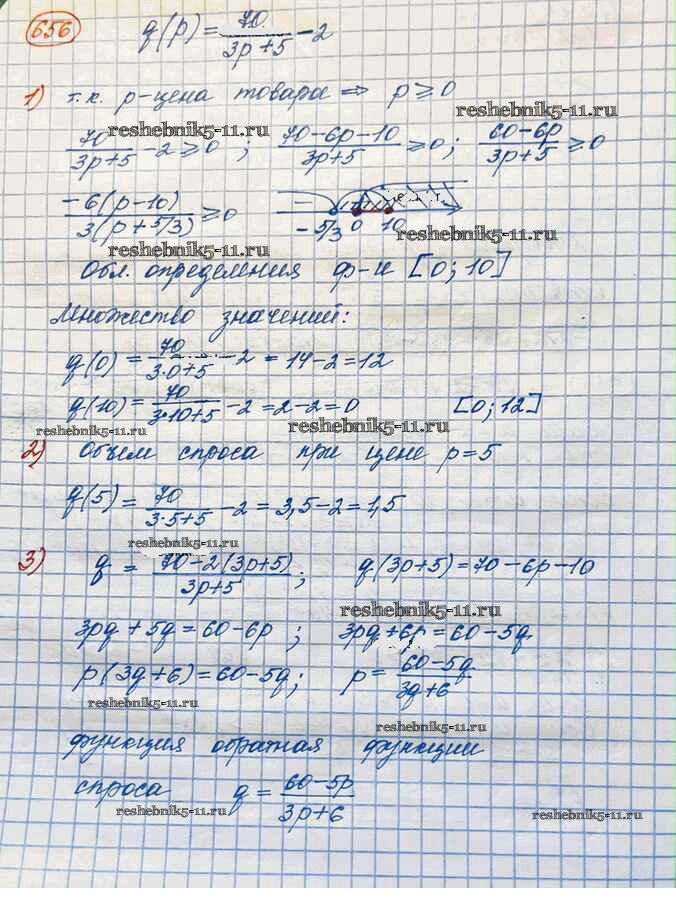 656 q(p) = 70/(3p+5) − 2
1) т.к. p-цена товара ⇒ p ≥ 0
reshebnik5-11.ru
70/(3p+5) − 2 ≥ 0 ; (70−6p−10)/(3p+5) ≥ 0 ; (60−6p)/(3p+5) ≥ 0
reshebnik5-11.ru
−6(p−10)/3(p+5/3) ≥ 0 − −5/3 0 10
reshebnik5-11.ru
Обл. определения ф-и [0; 10]
Множество значений:
q(0) = 70/(3·0+5) − 2 = 14−2 = 12
q(10) = 70/(3·10+5) − 2 = 2−2 = 0 [0; 12]
reshebnik5-11.ru
reshebnik5-11.ru
2) Объем спроса при цене p = 5
q(5) = 70/(3·5+5) − 2 = 3,5−2 = 1,5
reshebnik5-11.ru
3) q = (70−2(3p+5))/(3p+5); q(3p+5) = 70−6p−10
reshebnik5-11.ru
3pq + 5q = 60−6p ; 3pq + 6p = 60−5q
p(3q+6) = 60−5q; p = (60−5q)/(3q+6)
reshebnik5-11.ru
reshebnik5-11.ru
функция обратная функции
спроса q = (60−5p)/(3p+6)
reshebnik5-11.ru
reshebnik5-11.ru